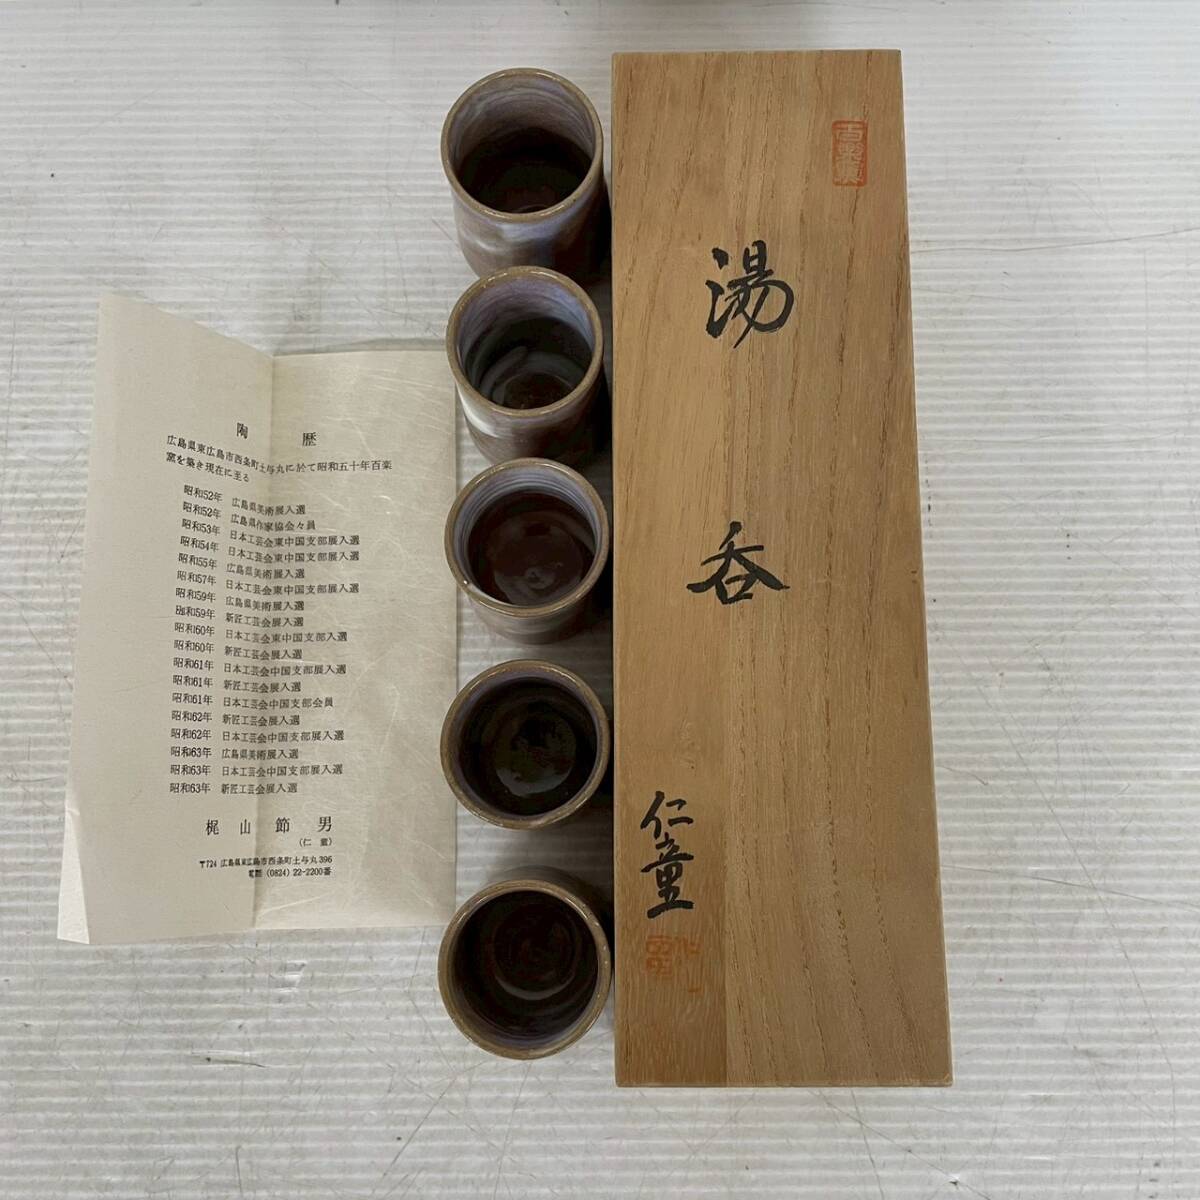 陶歴
広島県東広島市西条町土与丸に於て昭和五十年百楽
窯を築き現在に至る
昭和52年 広島県美術展入選
昭和52年 広島県作家協会々員
昭和53年 日本工芸会東中国支部展入選
昭和54年 日本工芸会東中国支部展入選
昭和55年 広島県美術展入選
昭和57年 日本工芸会東中国支部展入選
昭和59年 広島県美術展入選
昭和59年 新匠工芸会展入選
昭和60年 日本工芸会東中国支部入選
昭和60年 新匠工芸会展入選
昭和61年 日本工芸会中国支部展入選
昭和61年 新匠工芸会展入選
昭和61年 日本工芸会中国支部会員
昭和62年 新匠工芸会展入選
昭和62年 日本工芸会中国支部展入選
昭和63年 広島県美術展入選
昭和63年 日本工芸会中国支部展入選
昭和63年 新匠工芸会展入選
梶山節男
(仁童)
〒724 広島県東広島市西条町土与丸396
電話 (0824) 22-2200番
湯呑
仁童